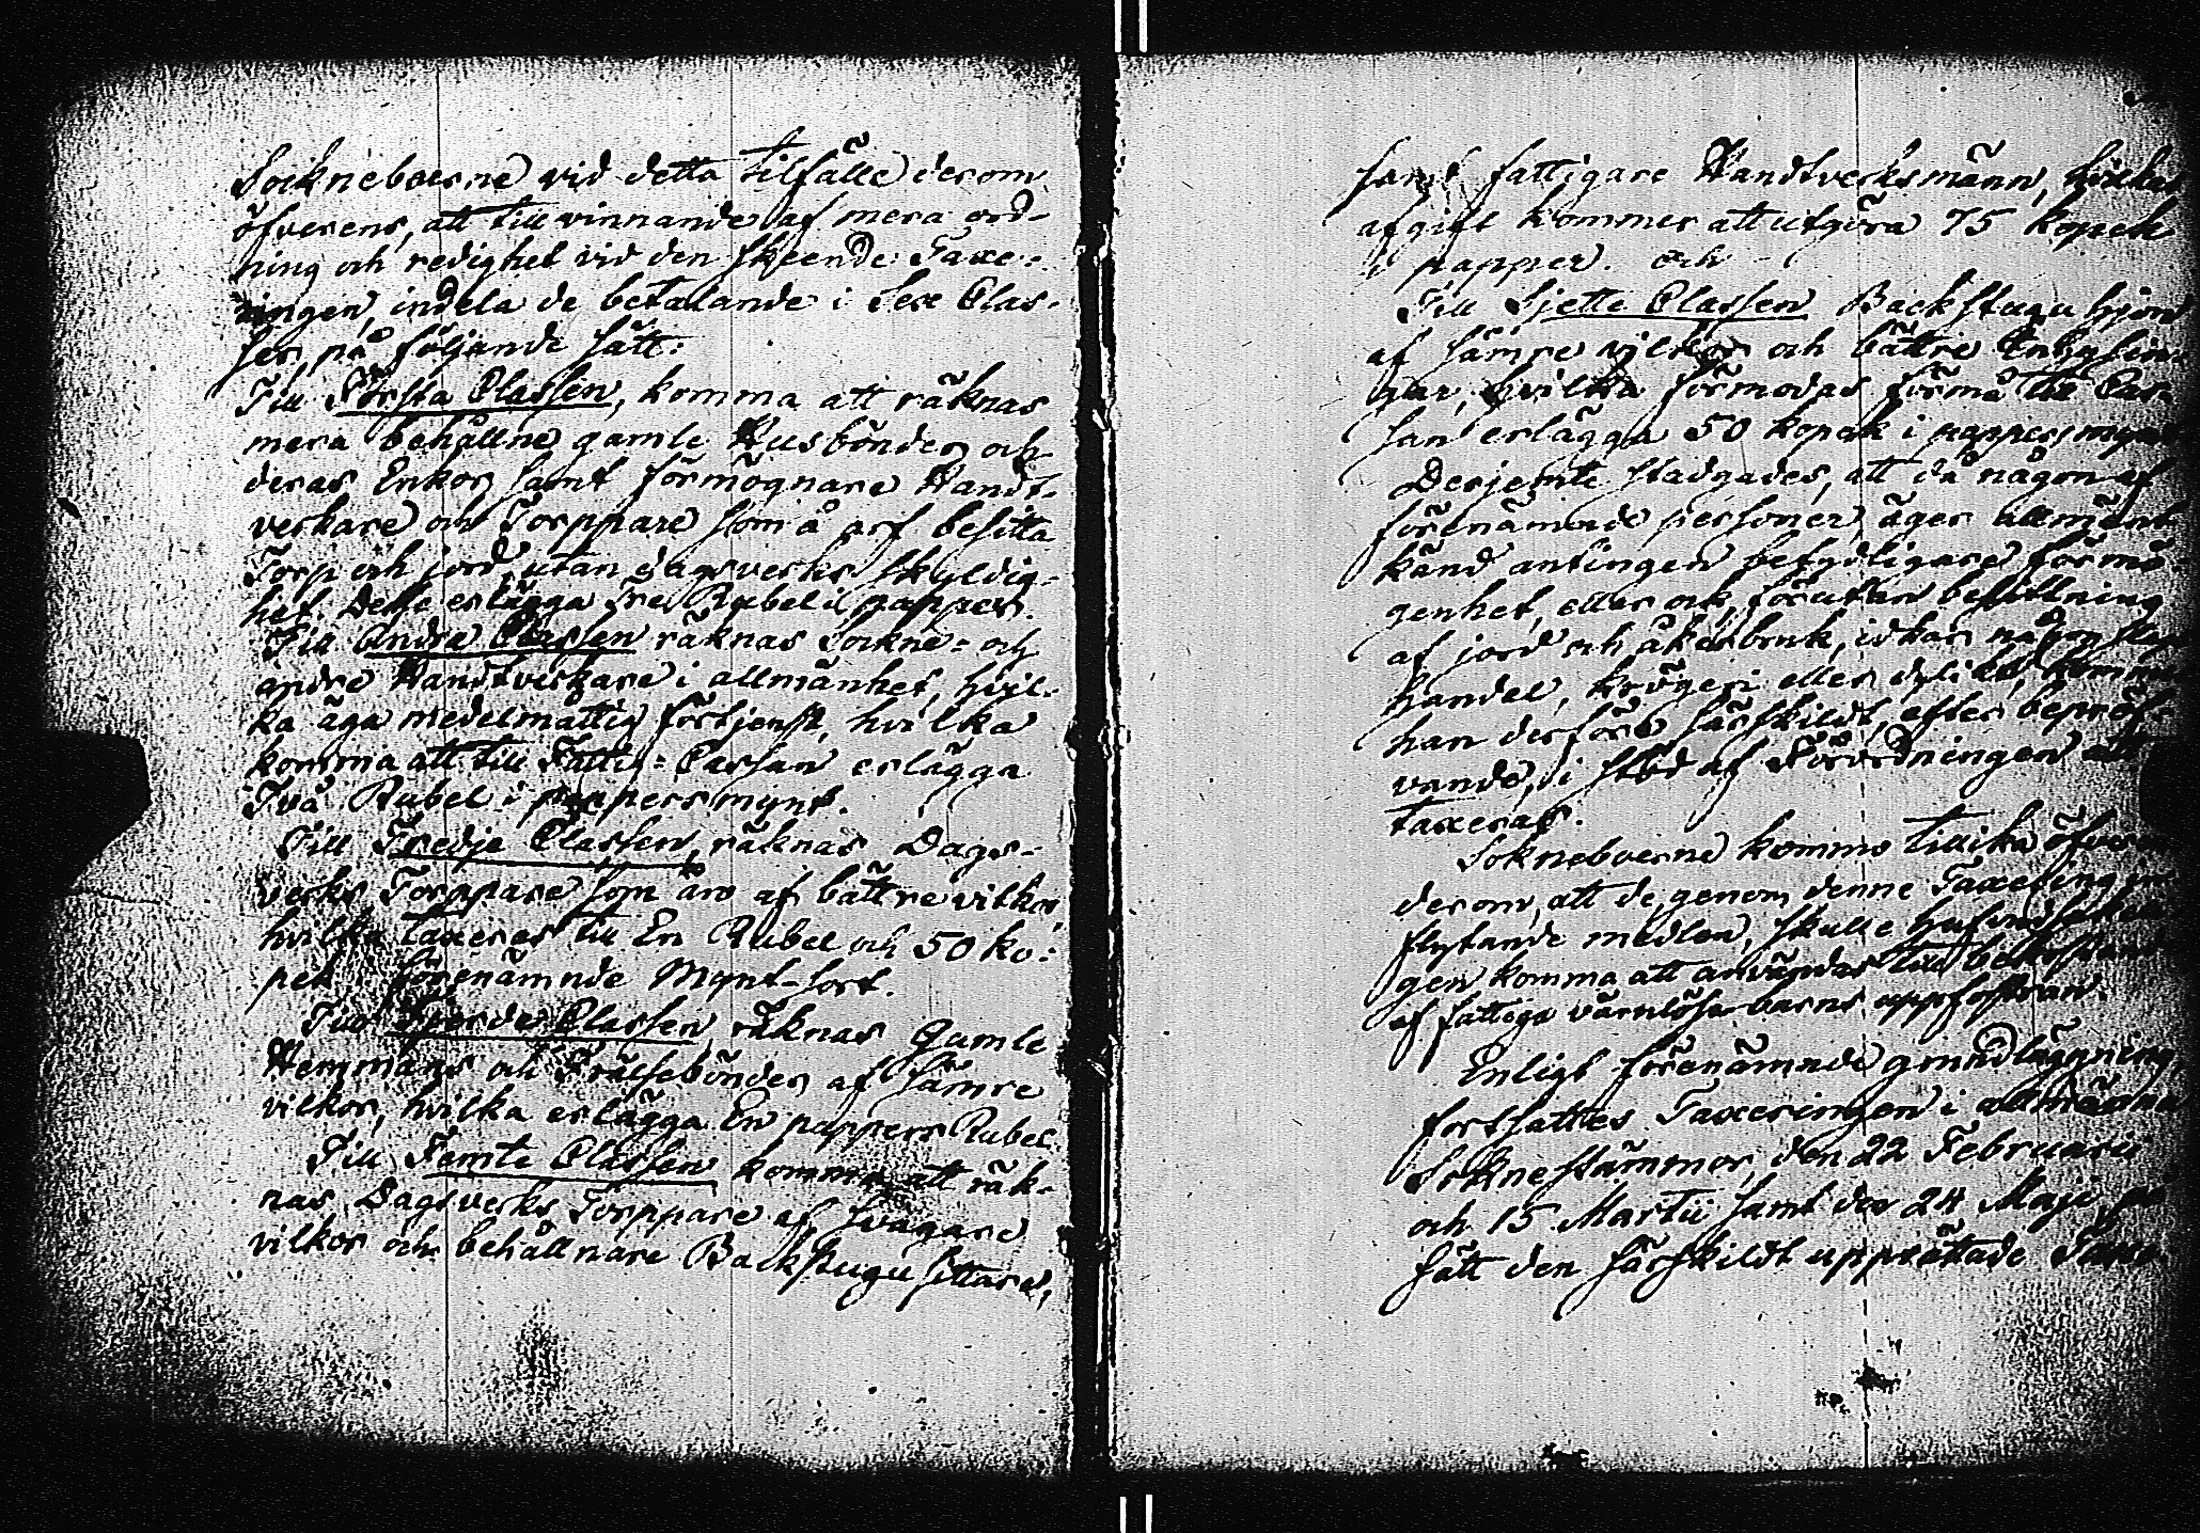 Sockneboerne vid detta tilfälle derom
öfverens, att till vinnande af mera ord-
ning och redighet vid den skeende Taxe-
ringen, indela de betalande i Sex Clas-
ser, på följande sätt:
Till Första Classen, komma att räknas
mera behållne gamle Husbönder och
deras Enkor, samt förmögnare Handt-
verkare och Torppare som å arf besitta
Torp och jord utan dagsverks skyldig-
het. Desse erlägga tre Rubel i papper.
Till Andra Classen räknas Sockne- och
andre Handtverkare i allmänhet, hvil-
ka äga medelmåttig förtjenst, hvilka
komma att till Fattig-Cassan erlägga
Två Rubel i pappersmynt.
Till Tredje Classen, räknas Dags-
verks Torppare som äro af bättre vilkor
hvilka taxeres till En Rubel och 50 ko-
pek förenämnde Mynt-sort.
Till Fjerde Classen, räknas Gamle
Hemmans och Frälsebönder af sämre
vilkor, hvilka erlägga En pappers Rubel.
Till Femte Classen komma att räk-
nas Dagsverks Torppare af svagare
vilkor och behållnare Backstugu sittare,
samt fattigare Handtverksmänn, hvilkas
afgift kommer att utgöra 75 kopek
i papper. och
Till Sjette Classen Backstugu hjon
af sämre vilkor och bättre Inhysin-
gar, hvilka förmodas förmå till Cas-
san erlägga 50 kopek i pappersmynt
Derjemte stadgades, att då någon af
förenämnde personer, äger allmänt
känd antingen betydligare förmö-
genhet, eller ock, förutan besittning
af jord och åkerbruk, idkar någon
handel, krögeri eller dylikt, komme
han derföre särskildt, efter bepröf-
vande, i stöd af Förordningen att
taxeras.
Sokneboerne kommo tillika öfverens
derom, att de, genom denne Taxering in-
flytande medlen, skulle hufvudsakeli-
gen komma att användas till bekostande
af fattiga värnlösa barns uppfostran.
Enligt förenämnde grundläggning,
fortsattes Taxeringen i allmänna
Sokne stämmor, den 22 Februarii
och 15 Martii samt den 24 Maji, på
sätt den särskildt upprättade Taxe-